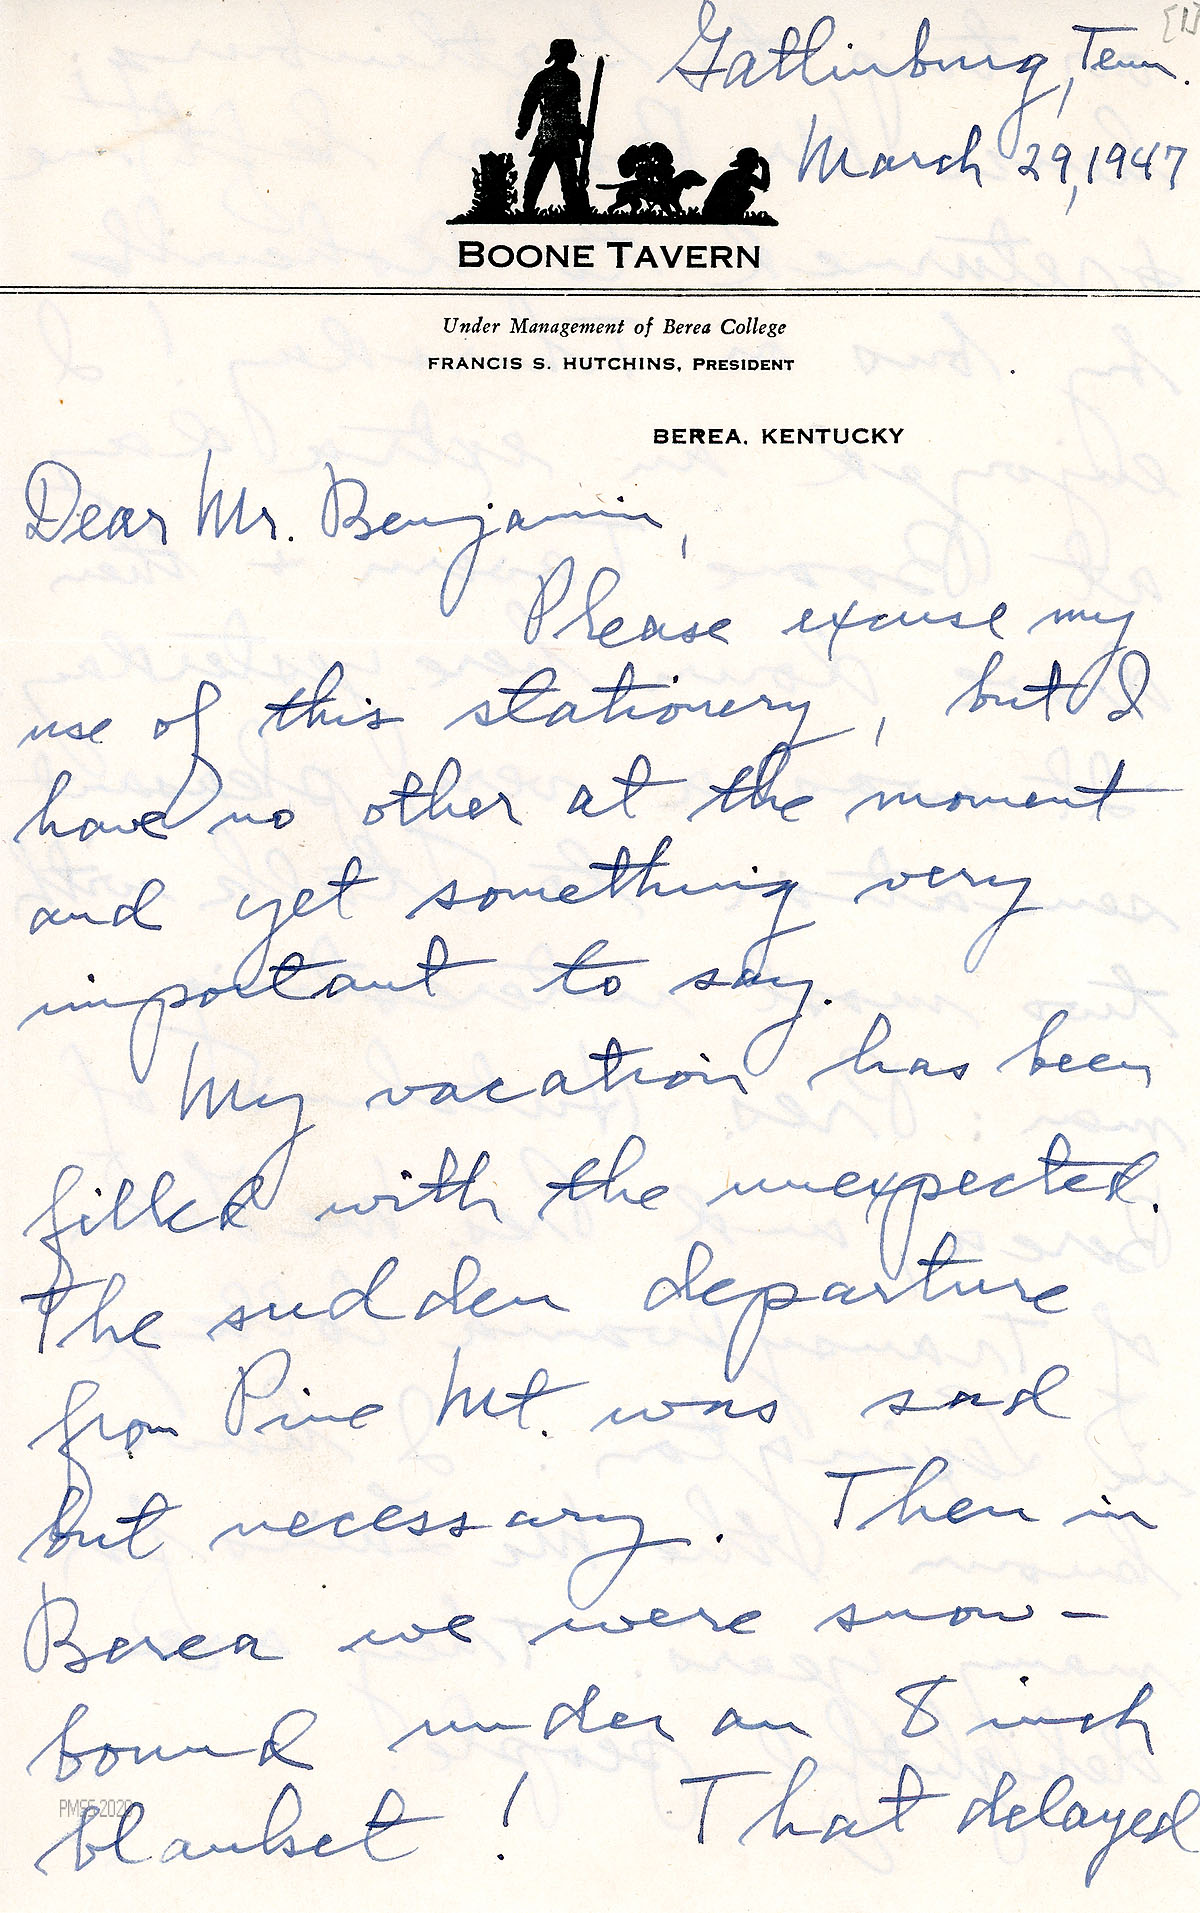 [1]
Gatlinburg, Tenn.
March 29, 1947
BOONE TAVERN
Under Management of Berea College
FRANCIS S. HUTCHINS, PRESIDENT
BEREA, KENTUCKY
Dear Mr. Benjamin,
Please excuse my
use of this stationery, but I
have no other at the moment
and yet something very
important to say.
My vacation has been
filled with the unexpected.
The sudden departure
from Pine Mt. was sad
but necessary. Then in
Berea we were snow-
bound under an 8 inch
blanket! That delayed
PMSS 2020